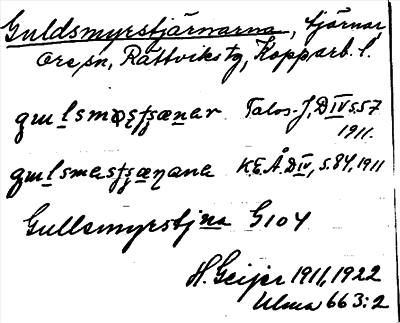 Guldsmyrstjärnarna, tjärnar,
Ore sn, Rättviks tg, Kopparb. l.
Talos-J, D IV s. 57
1911.
K.E.Å. D IV, s. 84, 1911
Gullsmyrstjna G104
H. Geijer 1911, 1922
Ulma 663:2